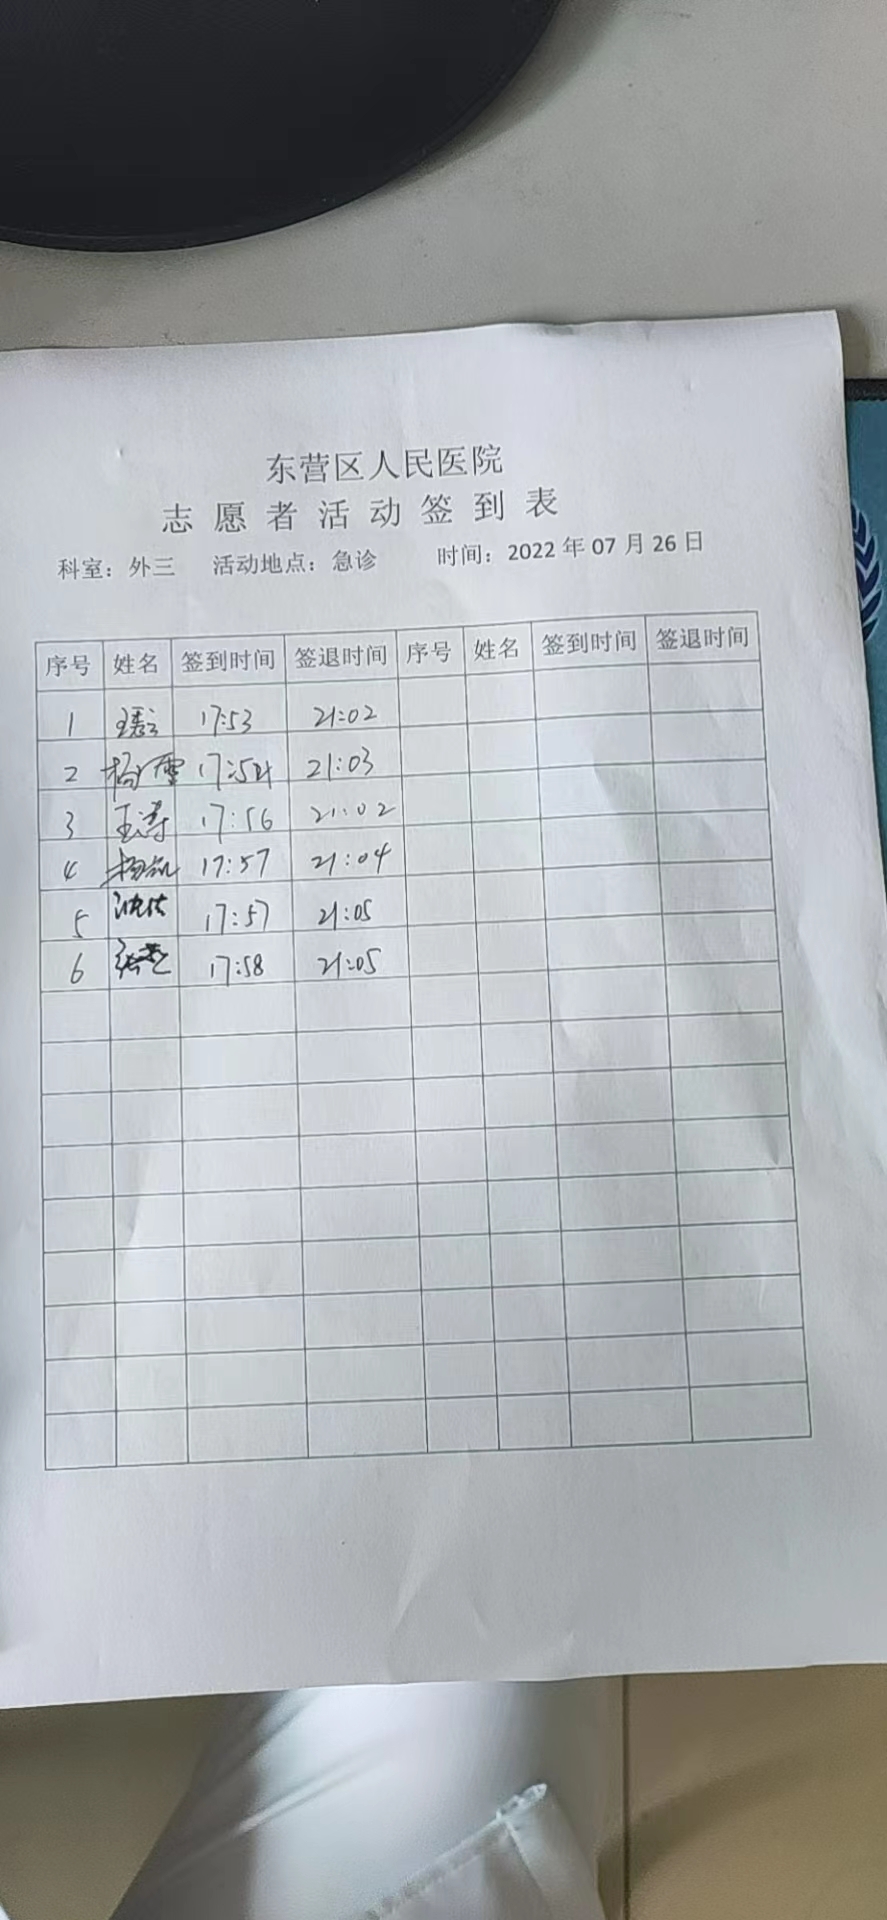 东营区人民医院
志愿者活动签到表
科室：外三 活动地点：急诊 时间：2022年07月26日
序号 姓名 签到时间 签退时间 序号 姓名 签到时间 签退时间
1 17:53 21:02
2 杨雪 17:54 21:03
3 王涛 17:56 21:02
4 17:57 21:04
5 17:57 21:05
6 17:58 21:05